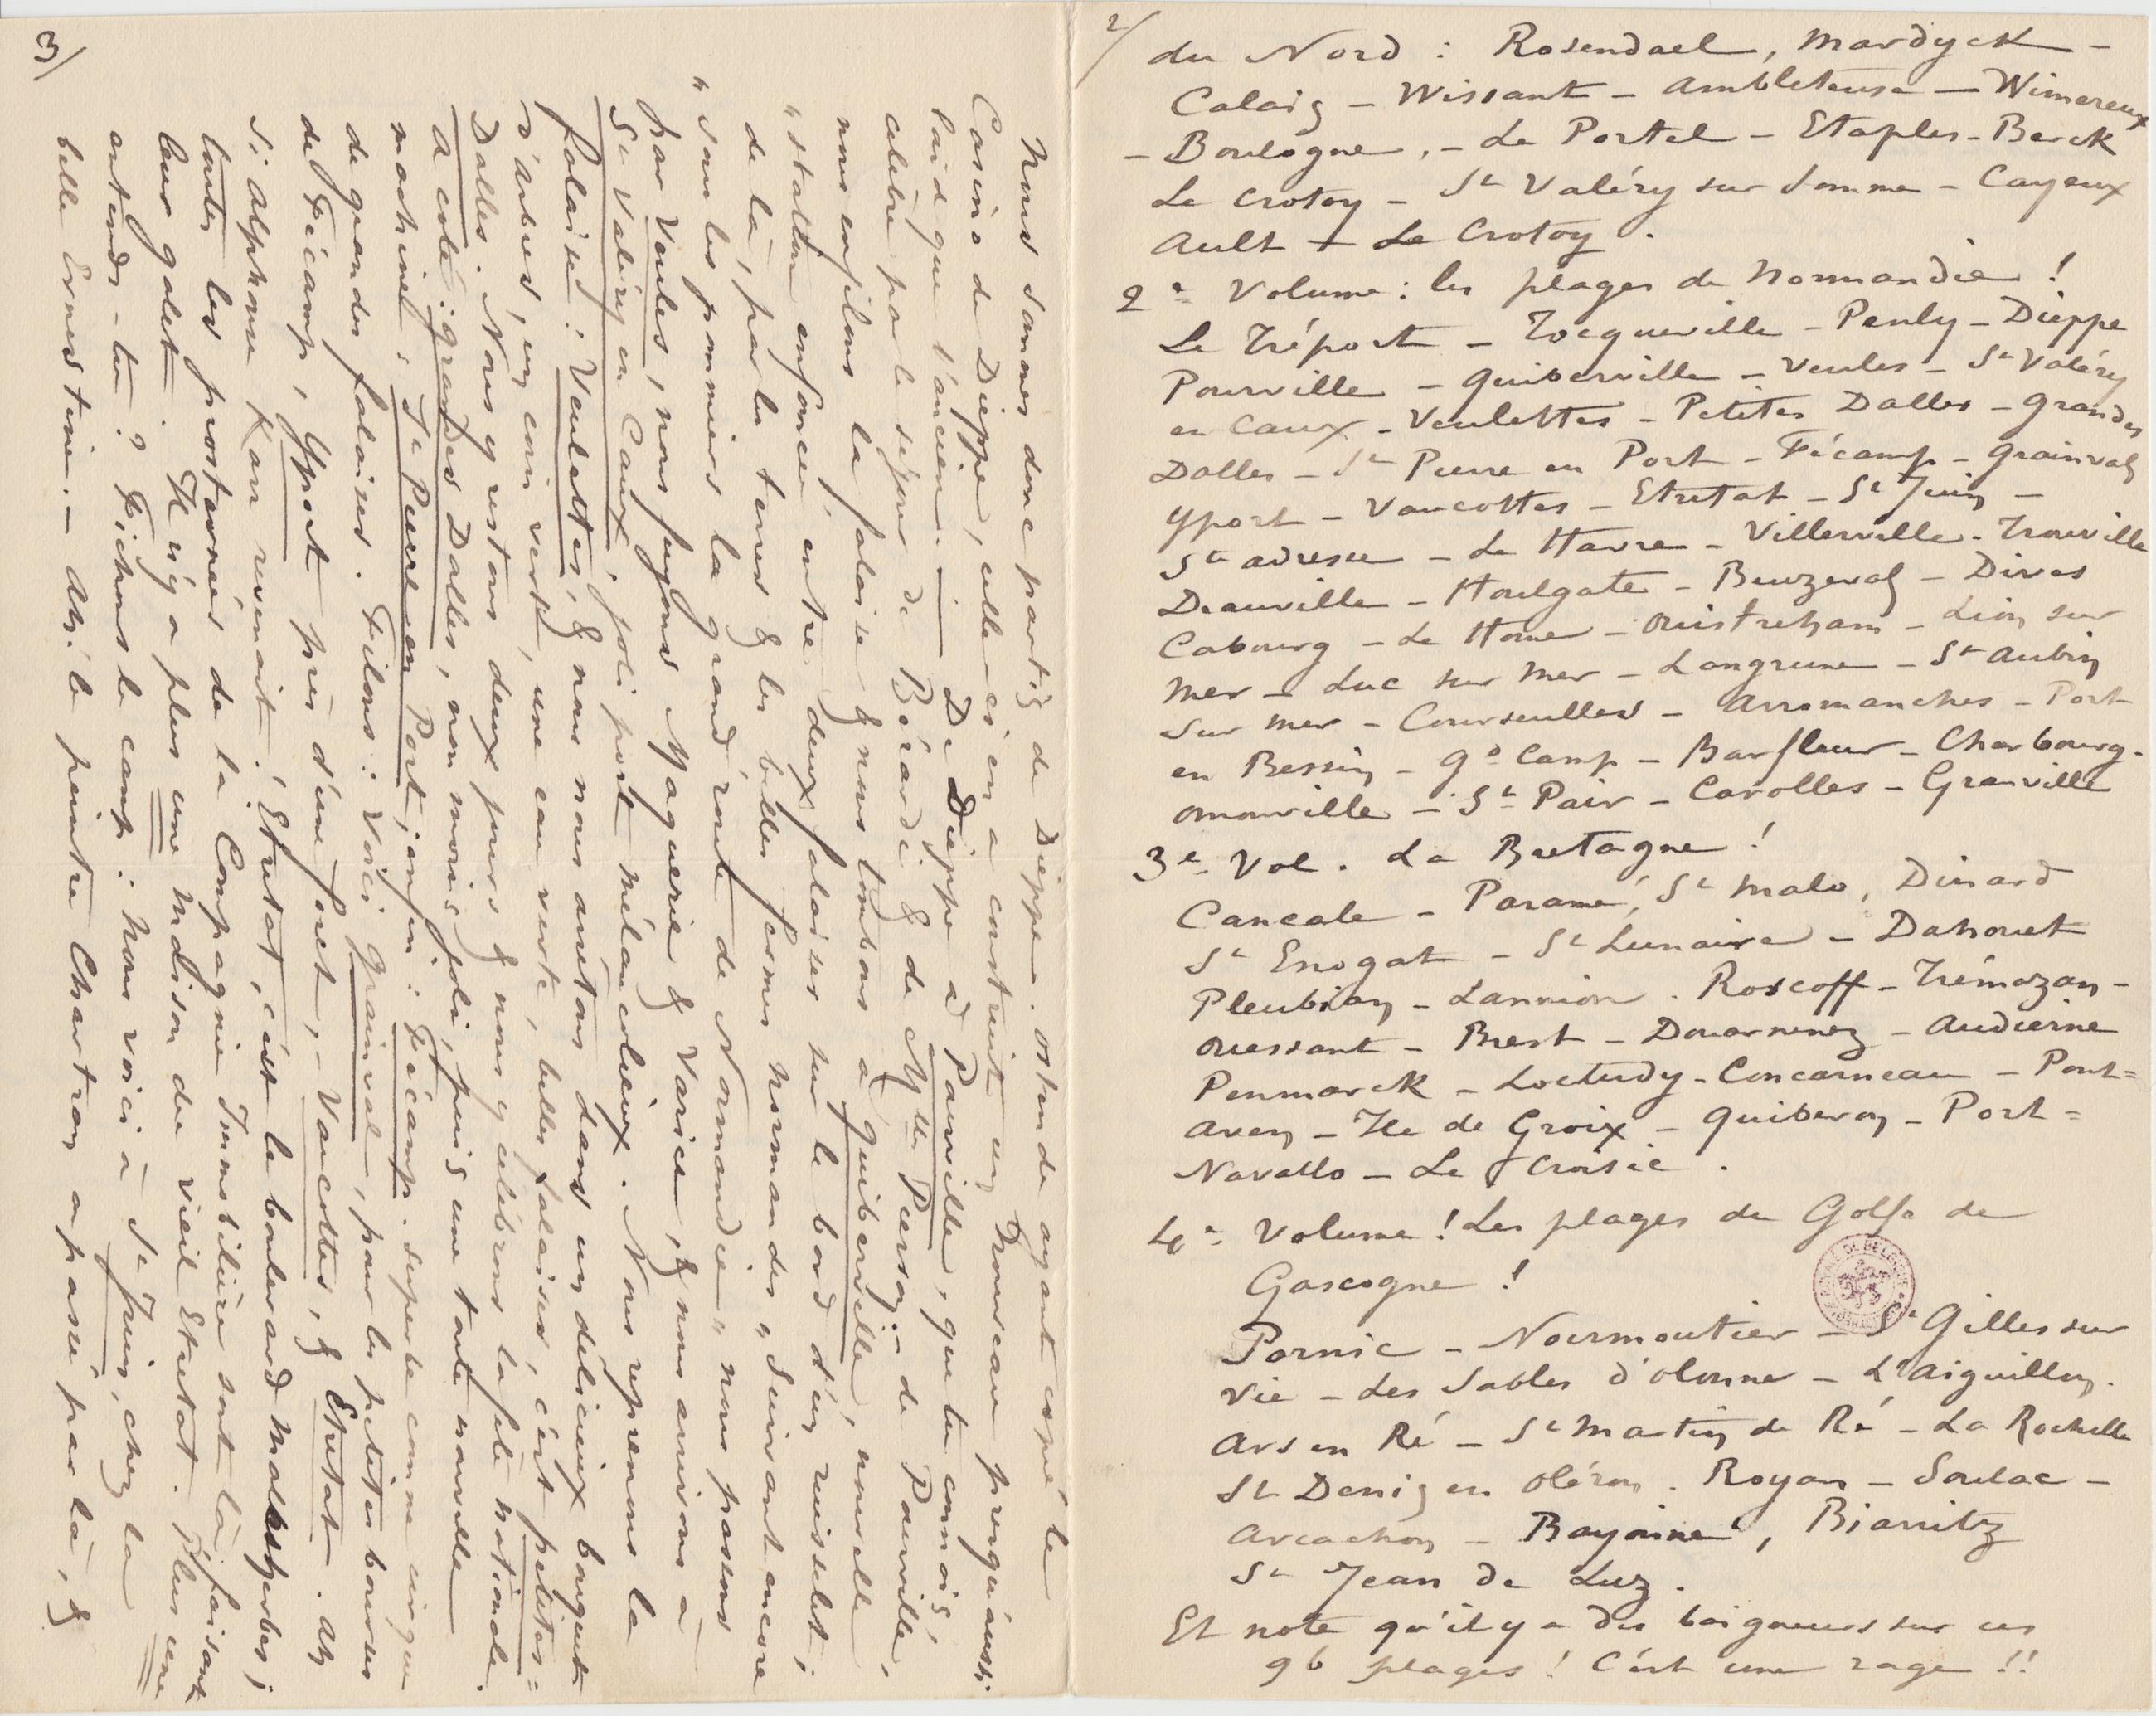 2/
du Nord : Rosendael, Mardyck –
Calais – Wissant – Ambleteuse – Wimereux
– Boulogne, – Le Portel – Etaples – Berck
Le Crotoy – St Valéry sur Somme – Cayeux
Ault – Le Crotoy.
2e Volume : les plages de Normandie !
Le Tréport – Tocqueville – Penly – Dieppe
Pourville – Quiberville – Veules – St Valéry
en Caux – Veulettes – Petites Dalles – Grandes
Dalles – St Pierre en Port – Fécamp – Grainval
Yport – Vaucottes – Etretat – St Juin –
Ste Adresse – Le Havre – Villerville – Trouville
Deauville – Houlgate – Beuzeval – Dives
Cabourg – Le Home – Ouistreham – Lion sur
Mer – Luc sur Mer – Langrune – St Aubin
sur mer – Courseulles – Arromanches – Port
en Bessin – Gd Camp – Barfleur – Cherbourg –
Omonville – St Pair – Carolles – Granville
3e Vol. La Bretagne !
Cancale – Paramé, St Malo, Dinard
St Enogat – St Lunaire – Dahouet
Pleubian – Lannion. Roscoff – Trémazan –
Ouessant – Brest – Douarnenez – Audierne
Penmarck – Loctudy – Concarneau – Pont=
Aven – Ile de Groix – Quiberon – Port=
Navallo – Le Croisic.
4e Volume ! Les plages du Golfe de
Gascogne !
Pornic – Noirmoutier – St Gilles sur
Vie – Les Sables d'Olonne – L'Aiguillon.
Ars en Ré – St Martin de Ré – La Rochelle
St Denis en Oléron. Royan – Soulac –
Arcachon – Bayonne, Biarritz
St Jean de Luz.
Et note qu'il y a des baigneurs sur ces
96 plages ! C'est une rage !!
3/
Nous sommes donc partis de Dieppe. Ostende ayant copié le
Casino de Dieppe, celle-ci en a construit un nouveau presqu'aussi
laid que l'ancien. — De Dieppe à Pourville, que tu connais,
célèbre par le séjour de Bérardi & de Mlle Pierson – de Pourville,
nous enfilons la falaise & nous tombons à Quiberville, nouvelle
"station enfoncée, entre deux falaises sur le bord d'un ruisselet ;
de là, par les terres & les belles fermes normandes, "suivant encore
"sous les pommiers la grand'route de Normandie" nous passons
par Veules, nous fuyons Maquerie & Varice, & nous arrivons à
St Valéry en Caux, joli port mélancolieux. Nous reprenons la
falaise : Veulettes, & nous nous arrêtons dans un délicieux bouquet
d'arbres, un coin vert, une eau verte, belles falaises, c'est petites=
Dalles. Nous y restons deux jours & nous y célébrons la fête nationale.
A côté : grandes Dalles, non moins joli, puis une toute nouvelle
machine, St Pierre en Port, enfin : Fécamp. superbe comme cirque
de grandes falaises. Filons : Voici Grainval, pour les petites bourses
de Fécamp, Yport près d'une forêt, – Vaucottes, & Etretat. Ah
si Alphonse Karr revenait ! Etretat, c'est le boulevard Malesherbes ;
toutes les prosternées de la Compagnie Immobilière sont là faisant
leur galet. Il n'y a plus une maison du vieil Etretat. Plus une
entends-tu ? Fichons le camp : Nous voici à St Juin, chez la
belle Ernestine. – Ah ! le peintre Chartran a passé par là, &